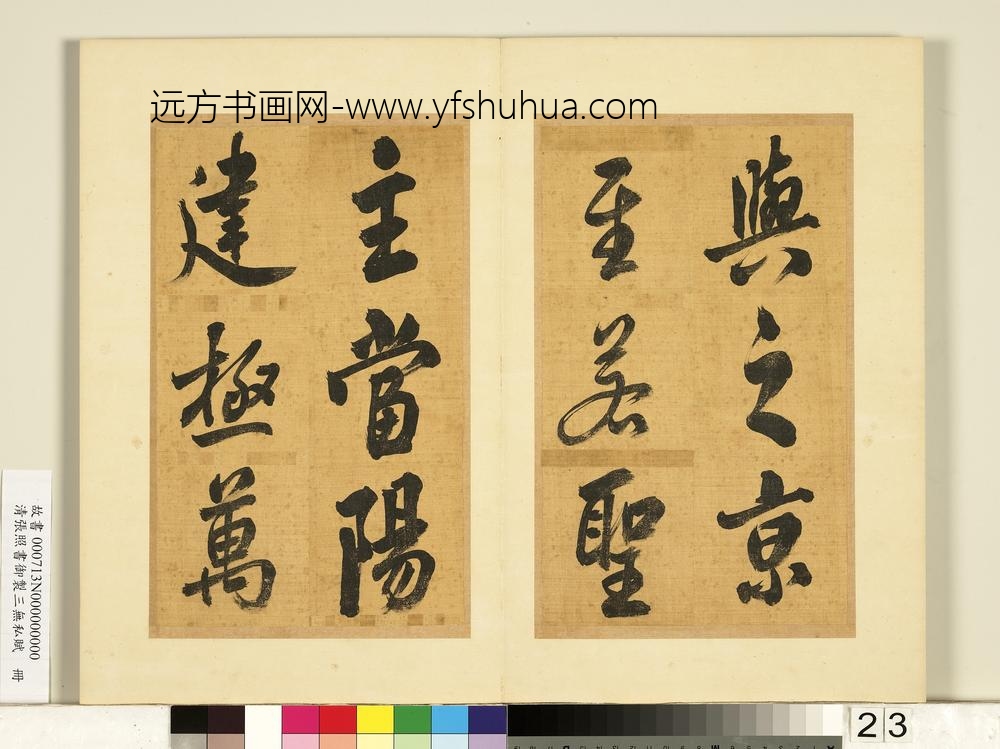 远方书画网-www.yfshuhua.com
與之京
至若聖
主當陽
建極萬
故書 000713N000000000
清張照書御製三無私賦 冊
23